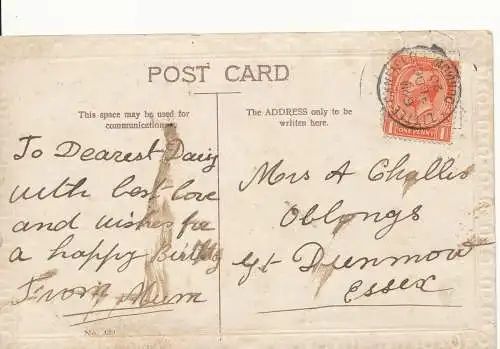 POST CARD
This space may be used for
communication.
The ADDRESS only to be
written here.
To Dearest Daisy
with best love
and wishes for
a happy Birthday
From Mum
Mrs A Challis
Oblongs
Gt Dunmow
Essex
ONE PENNY
1 1